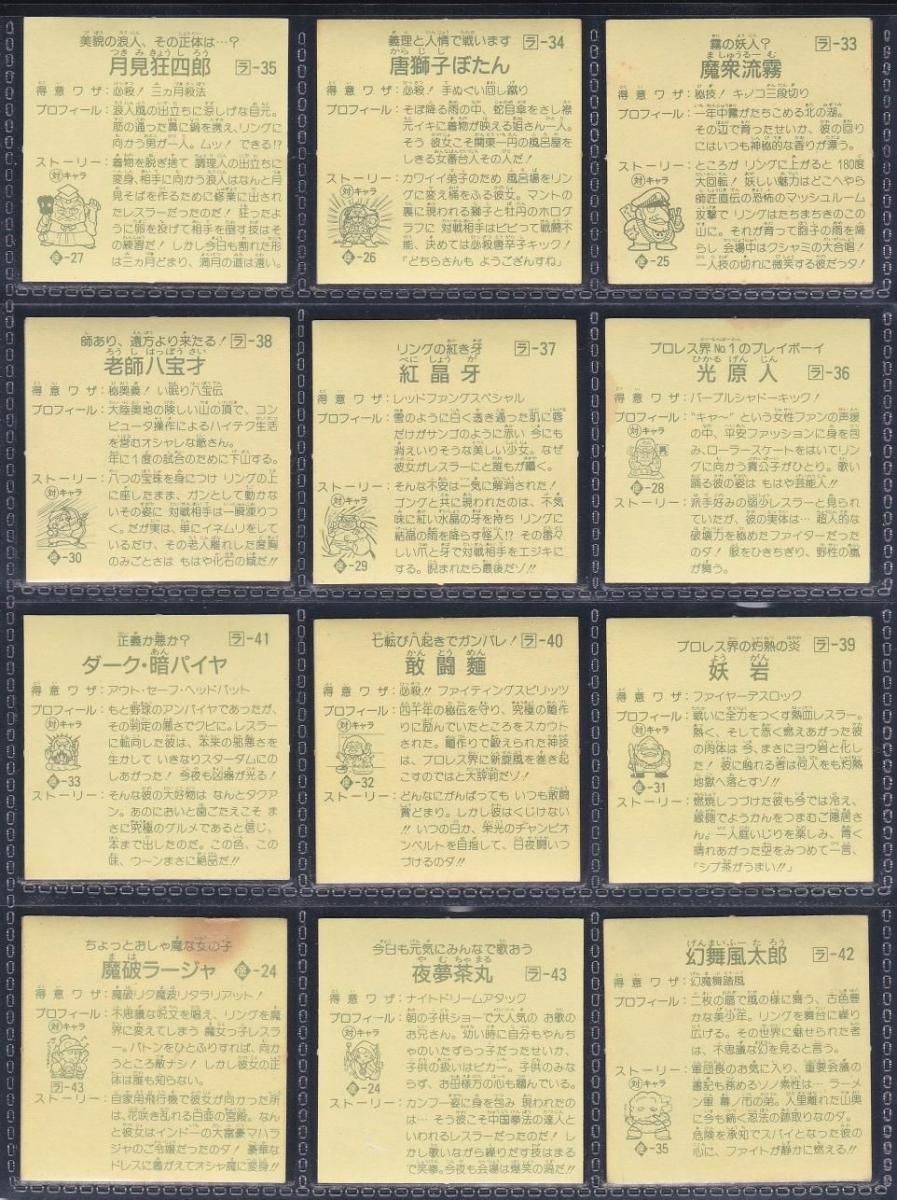 美貌の浪人、その正体は…?
月見狂四郎 ラ-35
つきみきょうしろう
得意ワザ:必殺! 三ヵ月殺法
プロフィール:浪人風の出立ちに涼しげな目元。
筋の通った鼻に鍋を携え、リングに
向かう男が一人。ムッ! できる!?
ストーリー:着物を脱ぎ捨て 調理人の出立ちに
対キャラ 変身、相手に向かう浪人はなんと月
見そばを作るために修業に出され
たレスラーだったのだ! 狂ったよ
うに卵を投げて相手を倒す技はそ
の練習だ! しかし今日も割れた形
-27 は三ヵ月どまり、満月の道は遠い。
義理と人情で戦います ラ-34
からじし
唐獅子ぼたん
得意ワザ:必殺! 手ぬぐい回し蹴り
プロフィール:そぼ降る雨の中、蛇目傘をさし襟
対キャラ 元イキに着物が映える姐さん一人。
そう 彼女こそ関東一円の風呂屋を
しきる女番台人その人だ!
ストーリー:カワイイ弟子のため 風呂場をリン
グに変え桶をふる彼女。マントの
裏に現われる獅子と牡丹のホログ
ラフに 対戦相手はビビって戦闘不
能、決めては必殺唐辛子キック!
-26 「どちらさんも ようござんすね」
霧の妖人? ラ-33
ましゅうるーむ
魔衆流霧
得意ワザ:秘技! キノコ三段切り
プロフィール:一年中霧がたちこめる北の湖。
その辺で育ったせいか、彼の回り
にはいつも神秘的な香りが漂う。
ストーリー:ところが リングに上がると 180度
対キャラ 大回転! 妖しい魅力はどこへやら
師匠直伝の恐怖のマッシュルーム
攻撃で リングはたちまちきのこの
山に。それが育って胞子の雨を降
らし 会場中はクシャミの大合唱!
-25 一人技の切れに微笑する彼だっタ!
師あり、遠方より来たる! ラ-38
ろうしはっぽうさい
老師八宝才
得意ワザ:秘奥義! い眠り八宝伝
プロフィール:大陸奥地の険しい山の頂で、コン
ピュータ操作によるハイテク生活
を営むオシャレな爺さん。
年に1度の試合のために下山する。
ストーリー:八つの宝珠を身につけ リングの上
対キャラ に座したまま、ガンとして動かない
その姿に 対戦相手は一瞬凍りつ
く。だが実は、単にイネムリをして
いるだけ、その老人離れした度胸
-30 のみごとさは もはや化石の域だ!!
リングの紅き牙 ラ-37
べにしょうが
紅晶牙
得意ワザ:レッドファングスペシャル
プロフィール:雪のように白く透き通った肌に唇
だけがサンゴのように赤い 今にも
消えいりそうな美しい少女。なぜ
彼女がレスラーにと誰もが囁く。
ストーリー:そんな不安は一気に解消された!
対キャラ ゴングと共に現われたのは、不気
味に紅い水晶の牙を持ち リングに
結晶の雨を降らす怪人!? その毒々
しい爪と牙で対戦相手をエジキに
-29 する。睨まれたら最後だゾ!!
プロレス界No1のプレイボーイ
ひかるげんじん
光原人 ラ-36
得意ワザ:パープルシャドーキック!
プロフィール:“キャ〜”という女性ファンの声援
対キャラ の中、平安ファッションに身を包
み、ローラースケートをはいてリン
グに向かう貴公子がひとり。歌い
-28 踊る彼の姿は もはや芸能人!!
ストーリー:派手好みの弱少レスラーと見られ
ていたが、彼の実体は… 超人的な
破壊力を極めたファイターだった
のダ! 服をひきちぎり、野性の嵐
が舞う。
正義か悪か? ラ-41
あん
ダーク・暗パイヤ
得意ワザ:アウト・セーフ・ヘッドバット
プロフィール:もと野球のアンパイヤであったが、
対キャラ その判定の悪さでクビに。レスラー
に転向した彼は、本来の邪悪さを
生かして いきなりスターダムにの
-33 しあがった! 今夜も凶器が光る!
ストーリー:そんな彼の大好物は なんとタクア
ン。あのにおいと歯ごたえこそ ま
さに究極のグルメであると信じ、
本まで出したのだ。この色、この
味、ウ〜ンまさに絶品だ!!
七転び八起きでガンバレ! ラ-40
かんとうめん
敢闘麺
得意ワザ:必殺!! ファイティングスピリッツ
プロフィール:四千年の秘伝を守り、究極の麺作
対キャラ りに励んでいたところをスカウト
された。麺作りで鍛えられた神技
は、プロレス界に新旋風を巻き起
-32 こすのではと大評判だゾ!
ストーリー:どんなにがんばっても いつも敢闘
賞どまり。しかし彼はくじけない
!! いつの日か、栄光のチャンピオ
ンベルトを目指して、日夜闘いつ
づけるのダ!!
プロレス界の灼熱の炎 ラ-39
ようがん
妖岩
得意ワザ:ファイヤーデスロック
プロフィール:戦いに全力をつくす熱血レスラー。
対キャラ 熱く、そして赤く燃えあがった彼
の肉体は 今、まさにヨウ岩と化し
た! 彼に触れる者は何人をも灼熱
-31 地獄へ落とすゾ!!
ストーリー:燃焼しつづけた彼も今では冷え、
縁側でようかんをつまむご隠居さ
ん。一人庭いじりを楽しみ、青く
晴れあがった空をみつめて一言、
「シブ茶がうまい!!」
ちょっとおしゃ魔な女の子
まは
魔破ラージャ -24
得意ワザ:魔破リク魔波リタラリアット!
プロフィール:不思議な呪文を唱え、リングを魔
対キャラ 界に変えてしまう 魔女っ子レスラ
ー。バトンをひとふりすれば、向か
うところ敵ナシ! しかし彼女の正
ラ-43 体は誰も知らない。
ストーリー:自家用飛行機で彼女が向かった所
は、花咲き乱れる白亜の宮殿。なん
と彼女はインドーの大富豪マハラ
ジャのご令嬢だったのだ! 豪華な
ドレスに着がえてオシャ魔に変身!!
今日も元気にみんなで歌おう
やむちゃまる
夜夢茶丸 ラ-43
得意ワザ:ナイトドリームアタック
プロフィール:朝の子供ショーで大人気の お歌の
対キャラ お兄さん。幼い時に自分もやんち
ゃのいたずらっ子だったせいか、
子供の扱いはピカ一。子供のみな
-24 らず、お母様方の心も掴んでいる。
ストーリー:カンフー姿に身を包み 現われたの
は… そう彼こそ中国拳法の達人と
いわれるレスラーだったのだ! し
かし歌いながら繰りだす技はまる
で笑拳。今夜も会場は爆笑の渦だ!!
げんまいふーたろう
幻舞風太郎 ラ-42
得意ワザ:幻魔舞踏風
プロフィール:二枚の扇で風の様に舞う、古色豊
かな美少年。リングを舞台に繰り
広げる。その世界に魅せられた者
は、不思議な幻を見ると言う。
ストーリー:軍団長のお気に入り、重要会議の
対キャラ 書記も務めるソノ素性は… ラーメ
ン軍 幕ノ市の弟。人里離れた山奥
に今も続く忍法の跡取りなのダ。
危険を承知でスパイとなった彼の
-35 心に、ファイトが静かに燃える!!